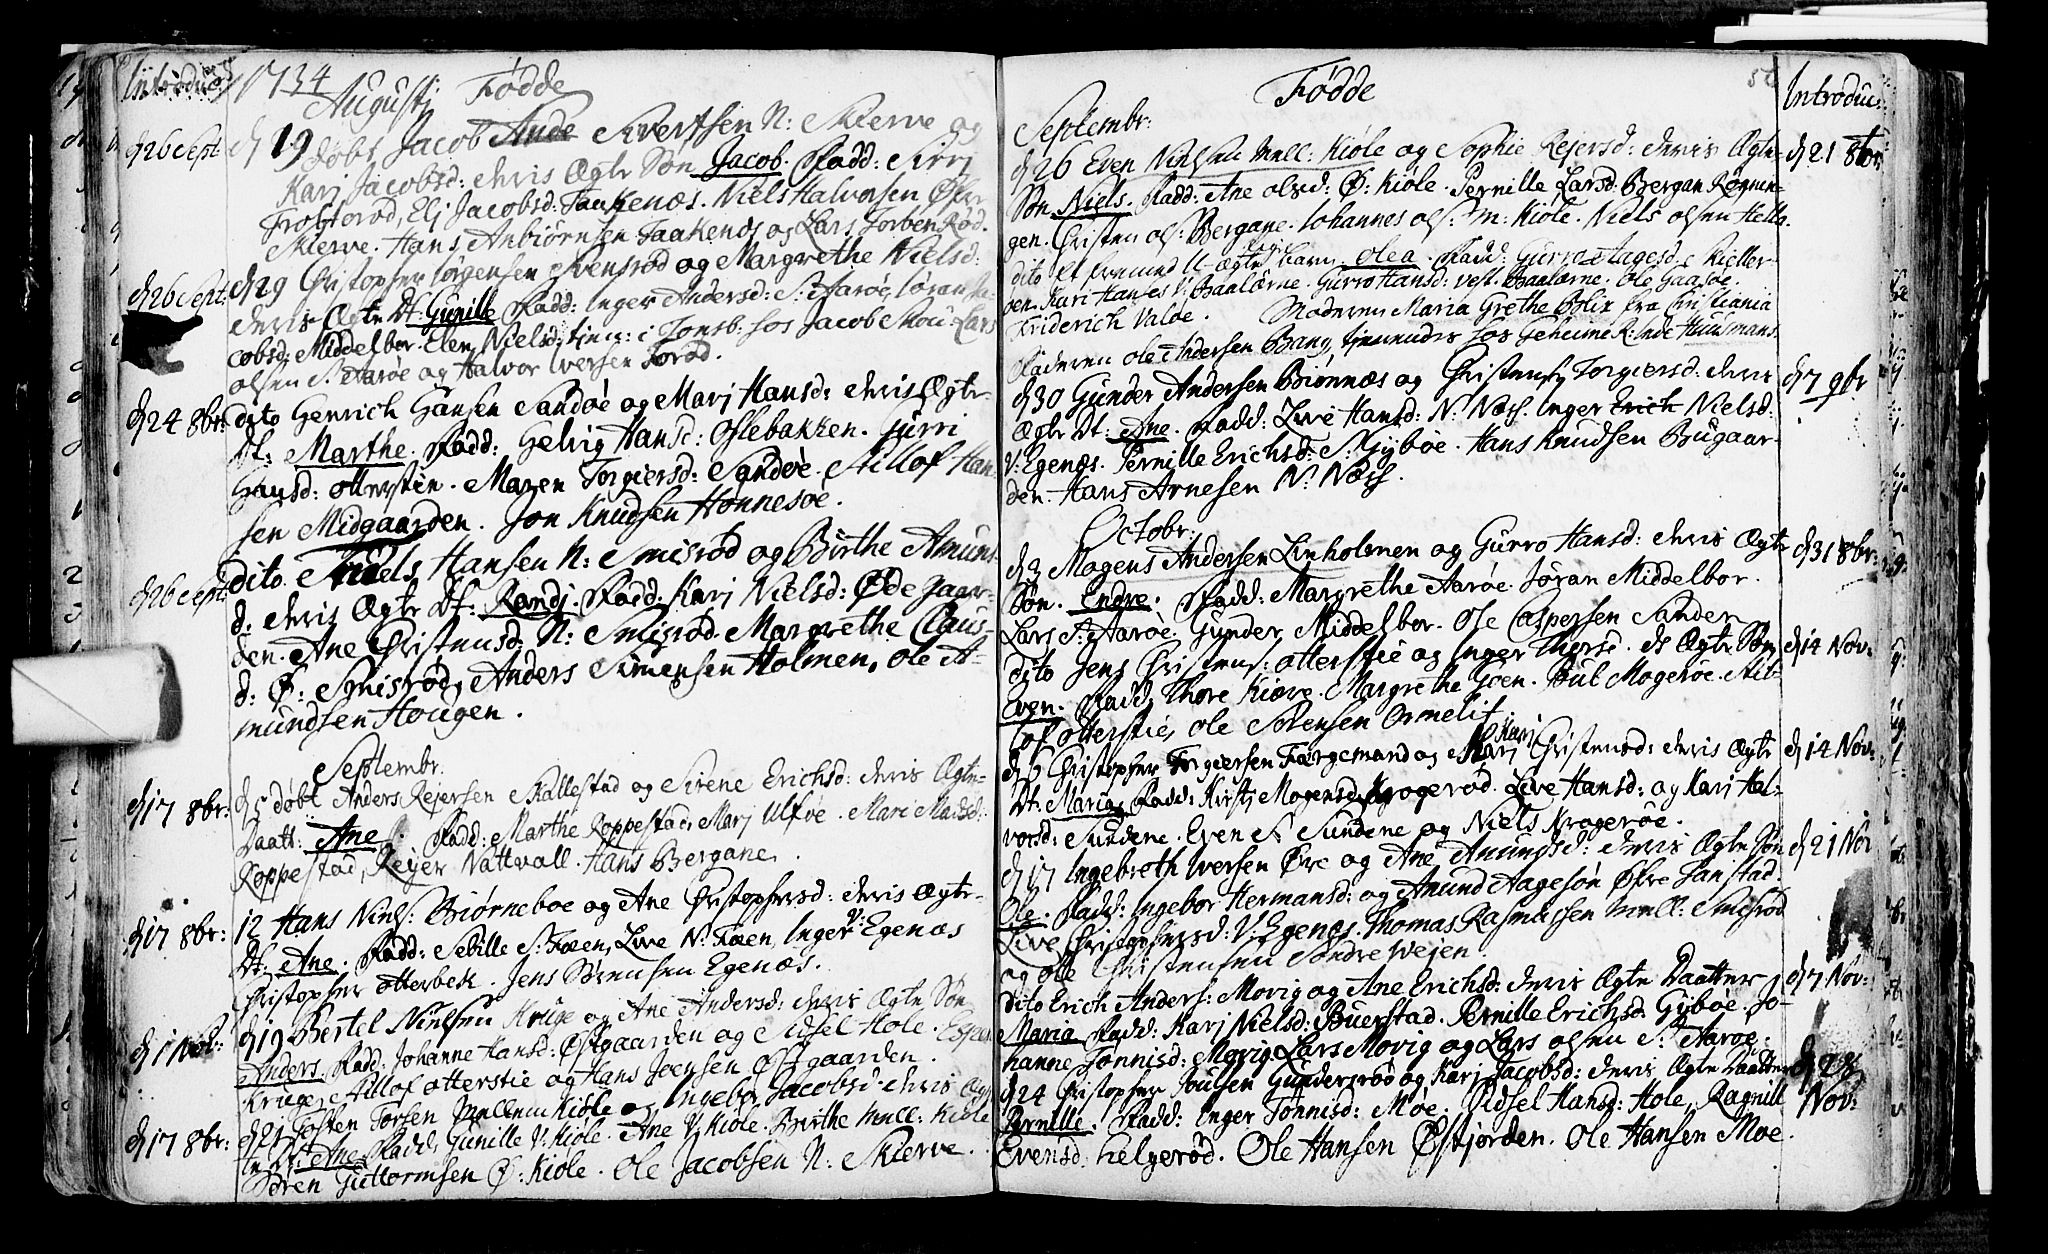 Introduc:
1734
Augustj Fødde
d 26 Sept: d 19 døbt Jacob Ande Sivertsen N: Skierve og
Karj Jacobsd: deris Ægte Søn Jacob. Fadd: Sirrj
Trolsorød, Elj Jacobsd: Taakenæs. Niels Halvorsen Øfre
Skierve. Hans Anbiørnsen Taakenæs og Lars Torbenrød.
d 26 Sept: d 29 Christopher Jørgensen Svensrød og Margrethe Nielsd:
deris Ægte Dt: Gunille Fadd: Inger Andersd: S: Aarøe, Jøran Ja-
cobsd: Middelbor. Elen Nielsd: tien: i Tonsb: hos Jacob Mou. Lars
olsen S: Aarøe og Halvor Iversen Torød.
d 24 8br: dito Henrich Hansen Sandøe og Marj Hansd: deris Ægte
Dt: Marthe. Fadd: Helvig Hansd: Oslebakken. Gurri
Hansd: otterstie. Maren Torgiersd: Sandøe. Stillof Han-
sen Midgaarden. Jon Knudsen Hønnesøe.
d 26 Sept: dito Niels Hansen N: Smisrød og Birthe Amun-
d. deris Ægte Dt: Randj. Fadd: Karj Nielsd: Øde gaar-
den. Ane Christensd: N: Smisrød. Margrethe Claus-
d: Ø: Smisrød, Anders Simensen Holmen, Ole A-
mundsen Hougen.
Septembr.
d 17 8br: d 5 døbt Anders Rejersen Skallestad og Sirene Erichsd: deris Ægte
Daatt: Ane. Fadd: Marthe Roppestad, Marj Ulføe. Mari Madsd:
Roppestad, Rejer Nattvall. Hans Bergane.
d 17 8br: 12 Hans Niels: Biørneboe og Ane Christophersd: deris Ægte
Dt: Ane. Fadd: Sebille S: Foen, Live N: Foen, Inger V: Egenæs
Christopher otterbek. Jens Sørensen Egenæs.
d 1 Nov: d 19 Bertel Nielsen Kruge og Ane Andersd: deris Ægte Søn
Anders. Fadd: Johanne Hansd: Østgaarden og Sidsel Hole. Espen
Kruge, Stillof otterstie og Hans Joensen Østgaarden.
d 17 8br: d 21 Tosten Torsen Mellem Kiøle og Ingebor Jacobsd: deris Æg-
te Dt: Ane. Fadd: Gunille V: Kiøle. Ane V: Kiøle. Birthe Mell: Kiøle
Søren Guttormsen Ø: Kiøle. Ole Jacobsen N: Skierve.
Fødde
Introduc:
Septembr:
d 26 Even Nielsen Mell: Kiøle og Sophie Rejersd: deris Ægte d 21 8br:
Søn Niels. Fadd: Ane olsd: Ø: Kiøle. Pernille Larsd: Bergan Rønnin-
gen. Christen ols: Bergane. Iohannes ols: m: Kiøle. Niels olsen Hella.
dito Et fremmed U-ægte barn, Olea. Fadd: Gurro Aagesd: Kieller-
gen. Kari Hanses V: Baalørne. Gurro Hansd: vest. Baalærne. Ole Gaasøe.
Friderich Valøe. Moderen Maria Grethe Blix fra Christiania
Faderen ole Andersen Bang, tiennendes hos Geheime R: inde Huusmans.
d 30 Gunder Andersen Biønnæs og Christense Torgiersd: deris d 7 9br
Ægte Dt: Ane. Fadd: Live Hansd: N: Næss. Inger Erich Nielsd:
V: Egenæs. Pernille Erichsd: S: Gyboe. Hans Knudsen Bugaar-
den. Hans Arnesen N: Næss.
Octobr:
d 3 Mogens Andersen Linholmen og Gurro Hansd: deris Ægte d 31 8br:
Søn. Endre. Fadd: Margrethe Aarøe. Jøran Middelbor.
Lars S: Aarøe. Gunder Middelbor. Ole Caspersen Sanden
dito Jens Christens: otterstie og Inger Thorsd. ds Ægte Søn d 14 Nov:
Even. Fadd: Thore Kiøve. Margrethe Goen. Poul Mogerøe. Stil-
lof otterstie, Ole Sørensen Ormelit.
d 6 Christopher Torgiersen Færgemand og Kari Christensd: deris Ægte d 14 Nov:
Dt: Maria, Fadd: Kirstj Mogensd: Krogerød. Live Hansd: og Karj Hal-
vorsd: Sundene. Even S: Sundene og Niels Krogerøe.
d 17 Ingebreth Iversen Øre og Ane Amundsd: deris Ægte Søn d 21 Nov
Ole. Fadd: Ingebor Hermansd: og Amund Aagesøn Øfre Fanstad.
Live Christophersd: V: Egenæs. Thomas Rasmussen Mell: Smisrød
og Olle Christensen Søndre Vejen.
dito Erich Anders: Movig og Ane Erichsd: deris Ægte Daatter d 7 Nov:
Maria Fadd: Karj Nielsd: Buerstad. Pernille Erichsd. Gyboe. Jo-
hanne Tonnisd: Movig. Lars Movig og Lars olsen S: Aarøe.
d 24 Christopher Poulsen Gundersrød og Karj Jacobsd: deris Ægte Daatter d 28
Pernille. Fadd: Inger Tonnisd: Moe. Sidsel Hansd: Hole, Ragnill Nov:
Evensd: helgerød. Ole Hansen Østjorden. Ole Hansen Moe.